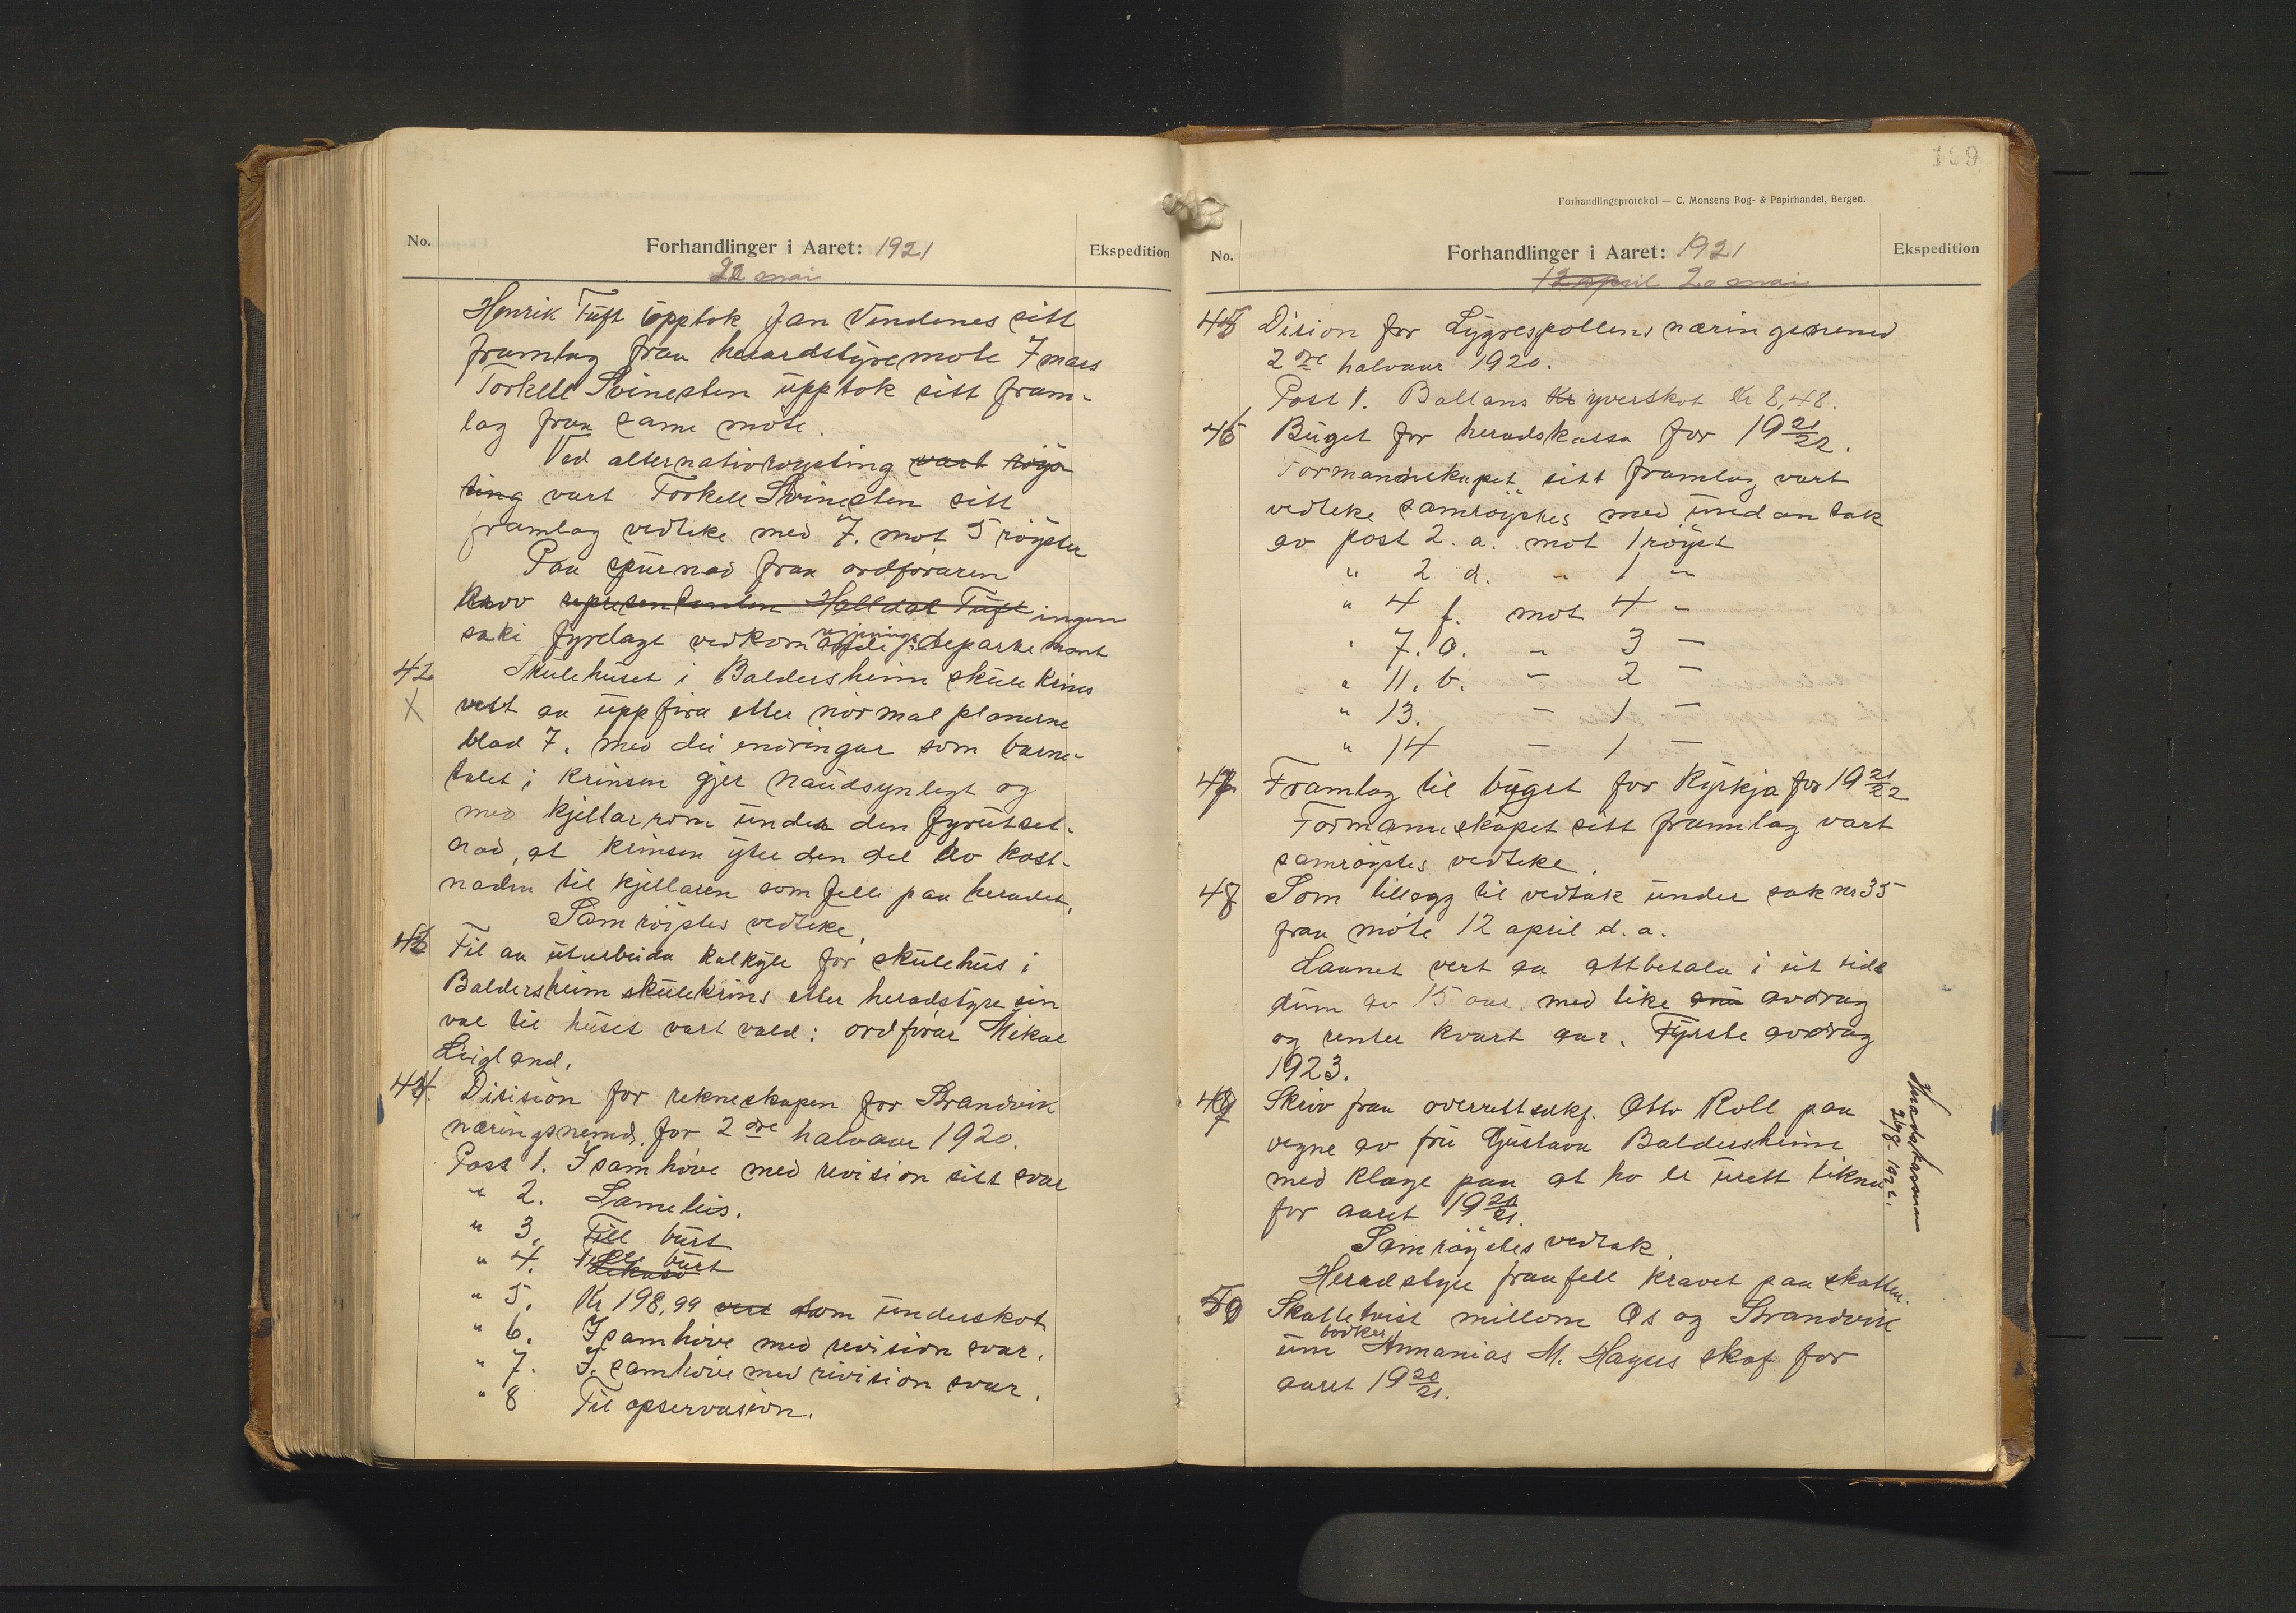 No.
Forhandlinger i Aaret: 1921
Ekspedition
20 mai
Henrik Tuft upptok Jan Vindenes sitt
framlag fraa heradstyremøte 7 mars
Torkell Svinesten upptok sitt fram-
lag fraa same møte.
Ved alternativrøysting vart røys-
ting vart Torkell Svinesten sitt
framlag vedteke med 7. mot 5 røyster
Paa spurnad fraa ordføraren
representanten Halldor Tuft ingen
saki fyrelagt vedkom regjerings departement
42
Skulehuset i Baldersheim skulekrins
X
vert aa uppføra etter normalplanerne
blad 7. med dei endringar som barne-
talet i krinsen gjer naudsynlegt og
med kjellarrom under den fyreutset-
nad, at krinsen yter den del av kost-
naden til kjellaren som fell paa heradet.
Samrøystes vedteke.
43
Til aa utarbeida kalkyle for skulehus i
Baldersheim skulekrins etter heradstyre sin
val til huset vart vald: ordførar Mikal
Leigland.
44.
Disision for rekneskapen for Strandvik
næringsnemd. for 2dre halvaar 1920.
Post 1. I samhøve med revision sitt svar
" 2. Sameleis.
" 3. Fell burt
" 4. Fell burt
" 5. Kr 198,99 vert som underskot
" 6. I samhøve med revision svar.
" 7. I samhøve med revision svar.
" 8 Til opservasion.
199
Forhandlingsprotokol — C. Monsens Bog- & Papirhandel, Bergen.
No.
Forhandlinger i Aaret: 1921
Ekspedition
12 april 20 mai
45
Dision for Lygrespollens næringsnemd
2dre halvaar 1920.
Post 1. Ballans Kr yverskot Kr 8,48.
46
Buget for heradskassa for 1921/22.
Formannskapet sitt framlag vart
vedteke samrøystes med undantak
av post 2. a. mot 1 røyst
" 2 d. " 1 "
" 4 f. mot 4 "
" 7. a. " 3 —
" 11. b. — 2 —
" 13. — 1 —
" 14 — 1 —
47
Framlag til buget for Kyrkja for 1921/22
Formannskapet sitt framlag vart
samrøystes vedteke.
48
Som tillegg til vedtak under sak nr 35
fraa møte 12 april d. a.
Laanet vert aa attbetala i eit tids
rum av 15 aar med like avdrag
og renter kvart aar. Fyrste avdrag
1923.
49
Skriv fraa overrettsakf. Otto Roll paa
vegne av fru Gustava Baldersheim
med klage paa at ho er urett likna
for aaret 1920/21.
Samrøystes vedtak.
Heradstyre fraafell kravet paa skatten.
50
Skattetvist millom Os og Strandvik
um bødker Annanias M. Hagus skat for
aaret 1920/21.